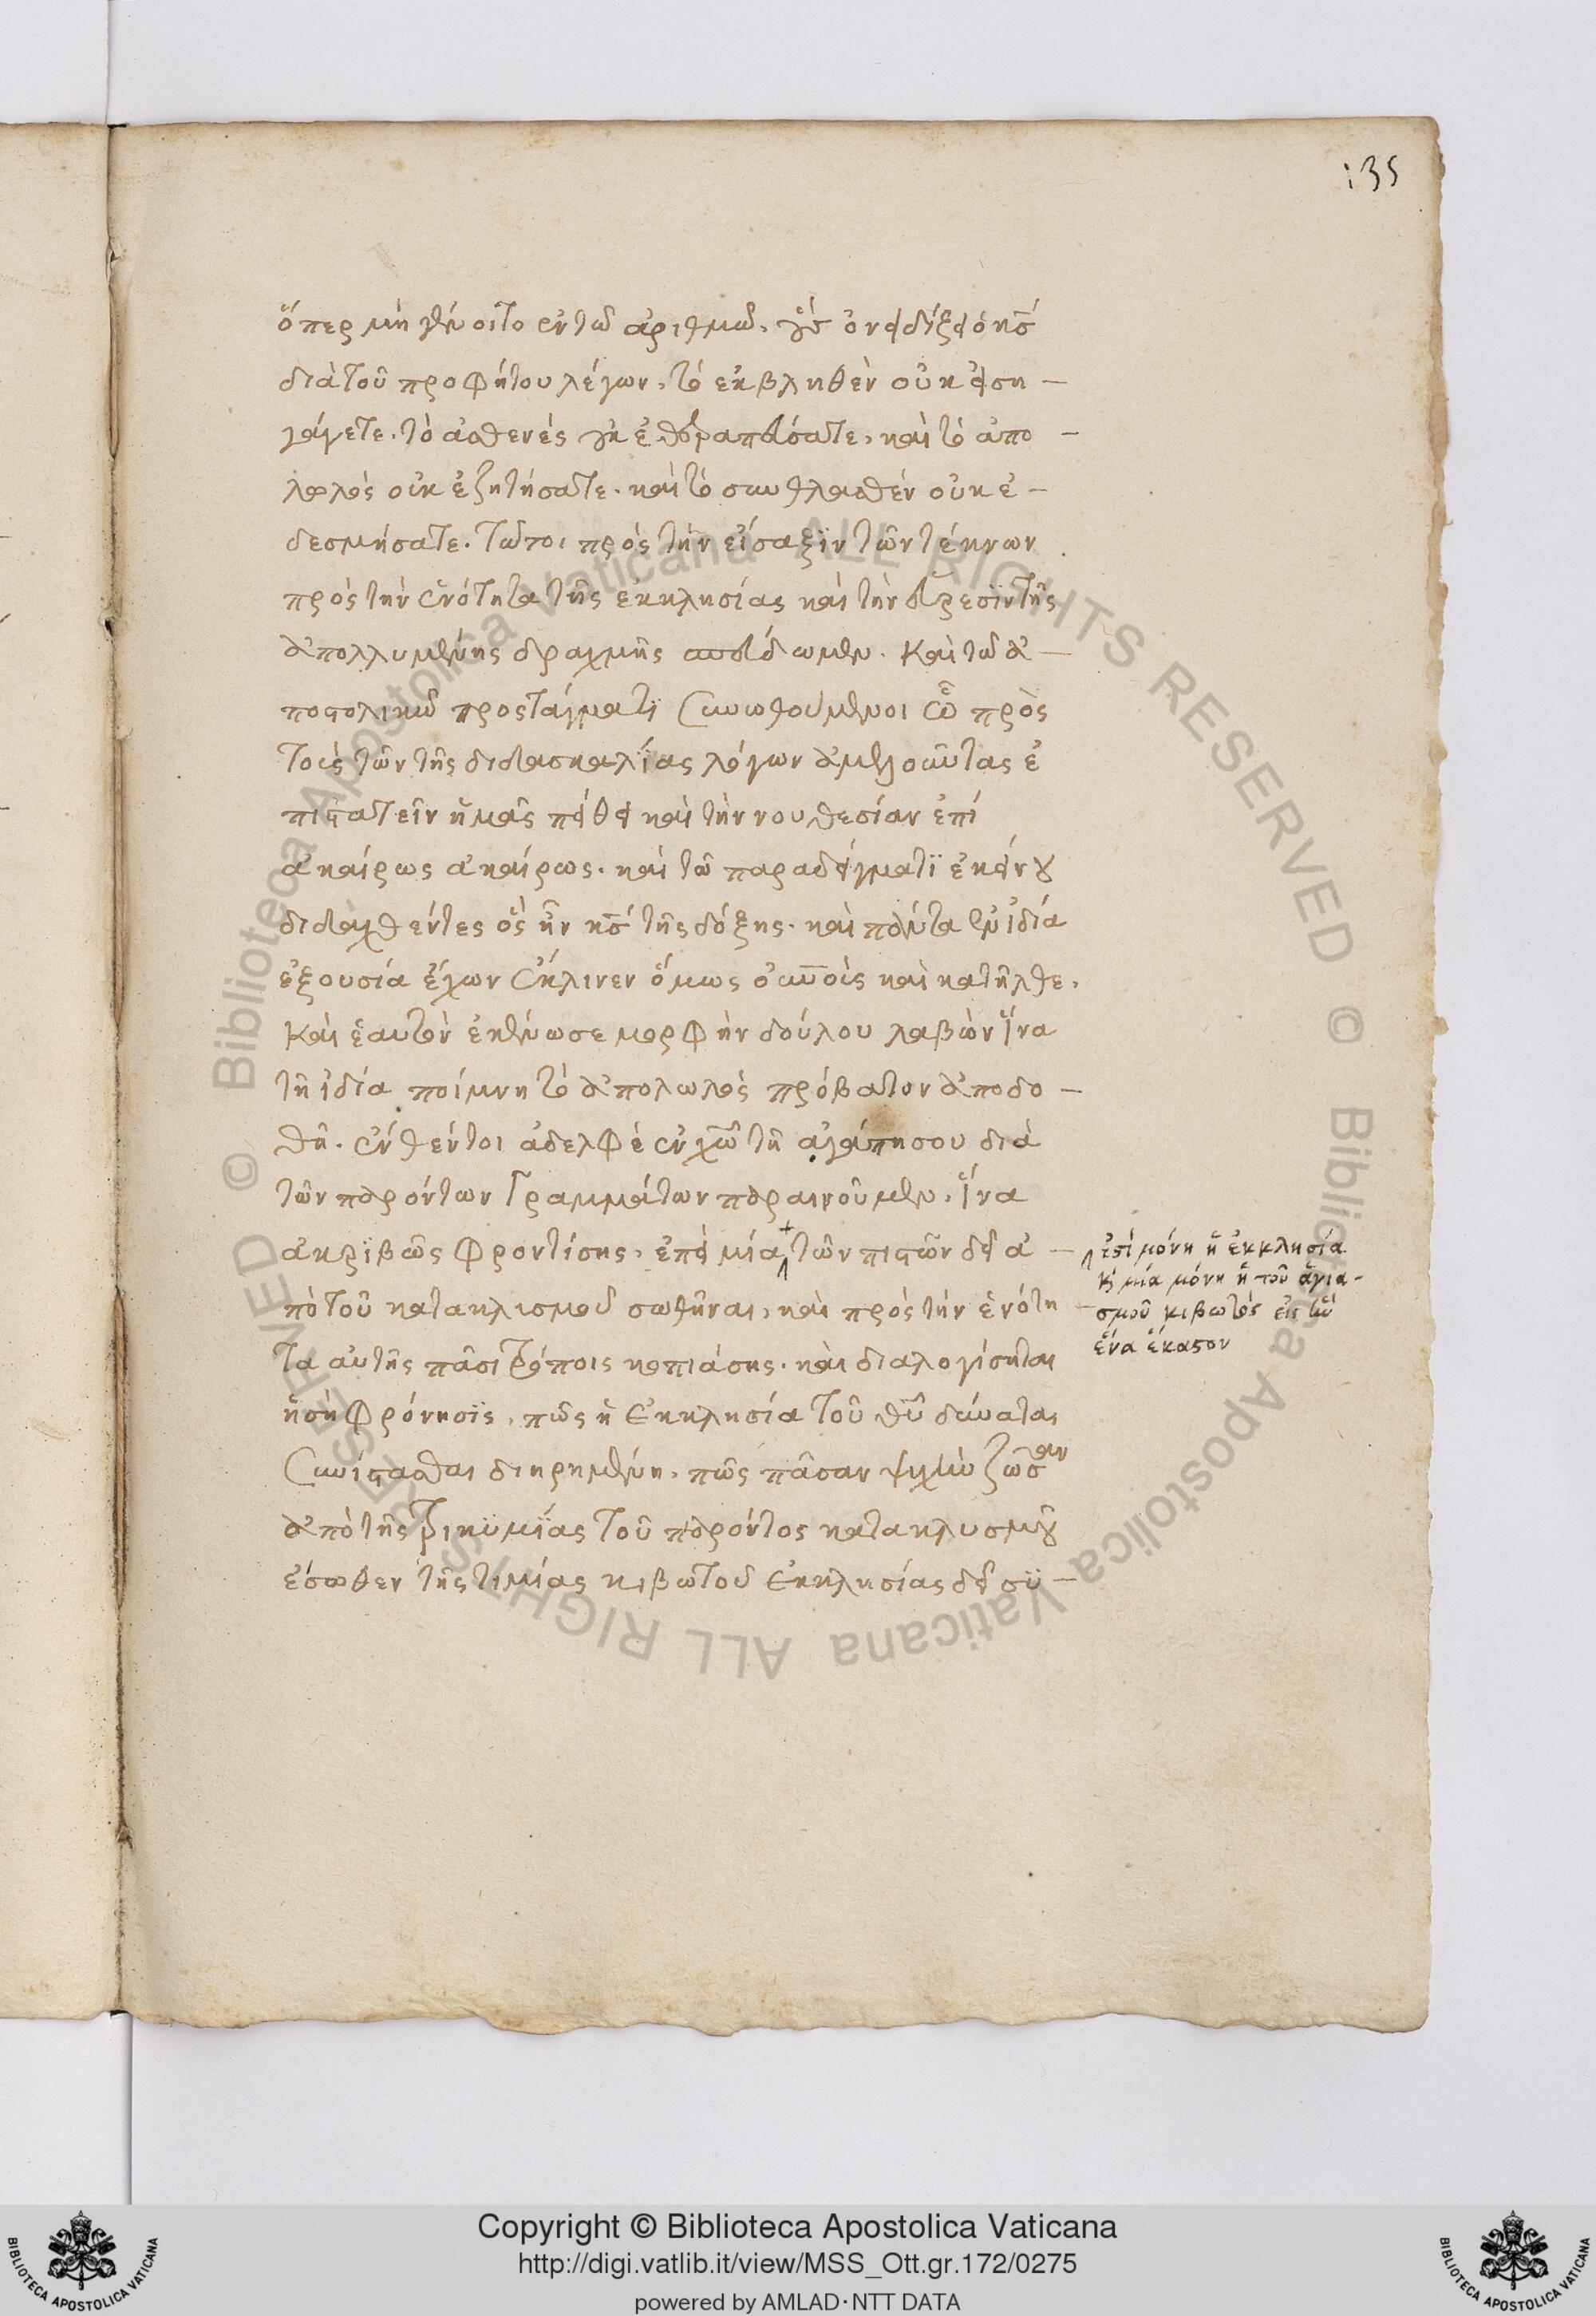 135
ὅπερ μὴ γένοιτο ἐν τῶ ἀριθμῶ, οὓς ὀνειδίζει ὁ κς
διὰ τοῦ προφήτου λέγων, τὸ ἐκβληθὲν οὐκ εἰση –
γάγετε. τὸ ἀσθενὲς οὐκ ἐθεραπεύσατε, καὶ τὸ ἀπο –
λωλὸς οὐκ ἐζητήσατε. καὶ τὸ συνθλασθὲν οὐκ ἐ –
δεσμήσατε. πρὸς τὴν εἴσαξιν τῶν τέκνων
πρὸς τὴν ἑνότητα τῆς ἐκκλησίας καὶ τὴν εὕρεσιν τῆς
ἀπολλυμένης δραχμῆς σπεύδωμεν. καὶ τῶ ἀ –
ποστολικῶ προστάγματι συνωθούμενοι ὧ πρὸς
τοὺς τῶν τῆς διδασκαλίας λόγων ἀμελοῦντας ἐ
πιστατεῖν ἡμᾶς πείθει καὶ τὴν νουθεσίαν ἐπί
ἀκαίρως ἀκαίρως. καὶ τῶ παραδείγματι ἐκείνου
διδαχθέντες ὃς ἦν κς τῆς δόξης. καὶ πάντα ἐν ἰδία
ἐξουσία ἔχων ἔκλινεν ὅμως οὐνοὺς καὶ κατῆλθε.
καὶ ἑαυτὸν ἐκένωσε μορφὴν δούλου λαβὼν ἵνα
τῆ ἰδία ποίμνη τὸ ἀπολωλὸς πρόβατον ἀποδο –
θῆ. ἔνθέν τοι ἀδελφὲ ἐν χῶ τῆ ἀγάπη σου διὰ
τῶν παρόντων γραμμάτων παραινοῦμεν, ἵνα
ἀκριβῶς φροντίσης, ἐπεὶ μία τῶν πιστῶν δεῖ ἀ –
πὸ τοῦ κατακλισμοῦ σωθῆναι, καὶ πρὸς τὴν ἑνότη
τα αὐτῆς πᾶσι τρόποις κοπιάσης. καὶ διαλογίσηται
ἡ σὴ φρόνησις, πῶς ἡ ἐκκλησία τοῦ θῦ δύναται
συνίστασθαι διηρημένη, πῶς πᾶσαν ψυχὴν ζῶσαν
ἀπὸ τῆς τρικυμίας τοῦ παρόντος κατακλυσμοῦ
ἔσωθεν τῆς τιμίας κιβωτοῦ ἐκκλησίας δεῖ σϋ –
ἐστὶ μόνη ἡ ἐκκλησία
κ μία μόνη ἡ τοῦ ἁγια-
σμοῦ κιβωτός εἰς ἣν
ἕνα ἕκαστον
Copyright © Biblioteca Apostolica Vaticana
http://digi.vatlib.it/view/MSS_Ott.gr.172/0275
powered by AMLAD·NTT DATA